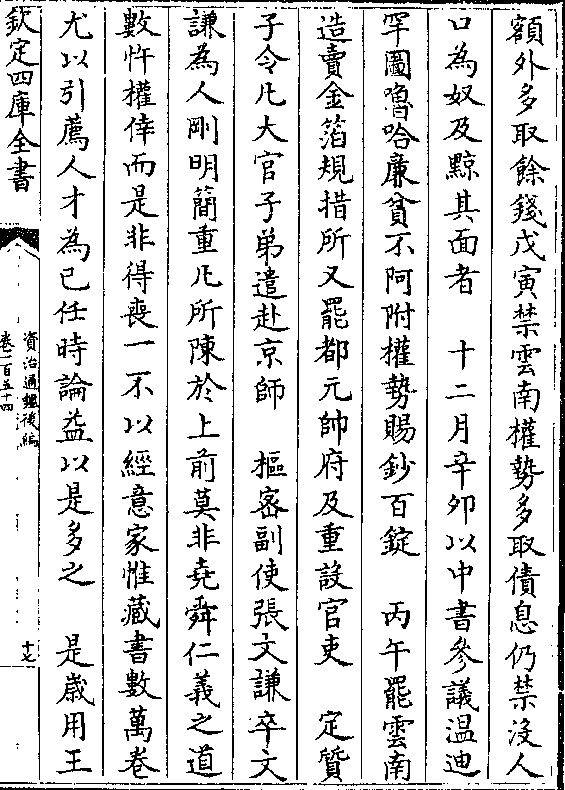 額外多取餘錢戊寅禁雲南權勢多取債息仍禁没人
口為奴及黥其面者　十二月辛卯以中書參議温迪
罕圖嚕哈廉貧不阿附權勢賜鈔百錠　丙午罷雲南
造賣金箔規措所又罷都元帥府及重設官吏　定質
子令凡大官子弟遣赴京師　樞密副使張文謙卒文
謙為人剛明簡重凡所陳於上前莫非堯舜仁義之道
數忤權倖而是非得喪一不以經意家惟藏書數萬卷
尤以引薦人才為己任時論益以是多之　是歲用王
欽定四庫全書
資治通鑑後編
卷一百五十四
十七